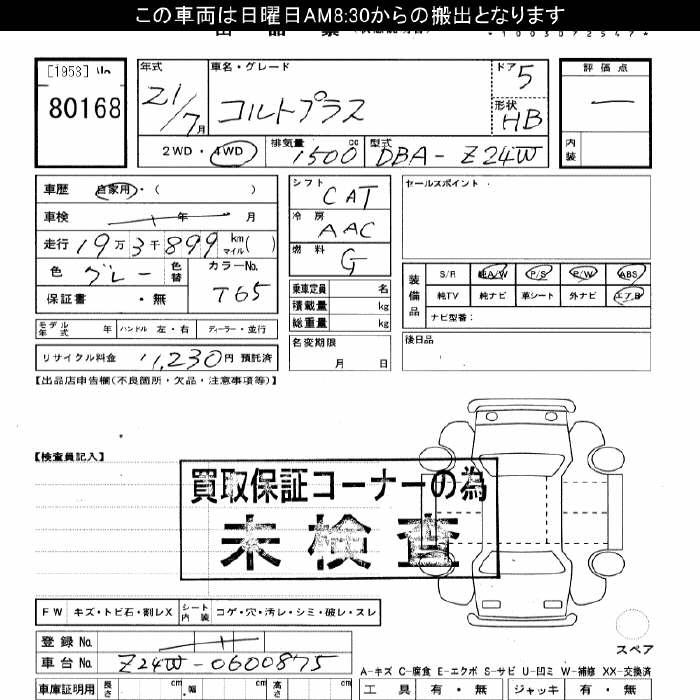 この車両は日曜日AM8:30からの搬出となります
[1953]
80168
年式
21/7月
車名・グレード
コルトプラス
ドア 5
形状 HB
2WD・4WD
排気量 1500 cc
型式 DBA-Z24W
評価点
—
内装
車歴 自家用・( )
車検 年 月
走行 19万3千899 km マイル( )
色 グレー 色替
カラーNo. T65
保証書 ・無
モデル年式 年 ハンドル 左・右 ディーラー・並行
リサイクル料金 11,230円 預託済
シフト CAT
冷房 AAC
燃料 G
乗車定員 名
積載量 kg
総重量 kg
名変期限
月 日
セールスポイント
装備品
S/R 純A/W P/S P/W ABS
純TV 純ナビ 革シート 外ナビ エアB
ナビ型番:
後日品
【出品店申告欄(不良箇所・欠品・注意事項等)】
【検査員記入】
買取保証コーナーの為
未検査
FW キズ・トビ石・割レX シート内装 コゲ・穴・汚レ・シミ・破レ・スレ
登録No.
車台No. Z24W-0600875
スペア
A-キズ C-腐食 E-エクボ S-サビ U-凹ミ W-補修 XX-交換済
車庫証明用 長さ cm ・幅 cm 高さ cm
工具 有・無 ジャッキ 有・無